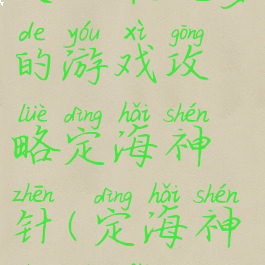 de yóu xì gōng
的游戏攻
lüè dìng hǎi shén
略定海神
zhēn dìng hǎi shén
针(定海神